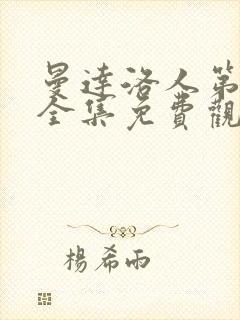 曼達洛人第
全集免費觀
楊希雨